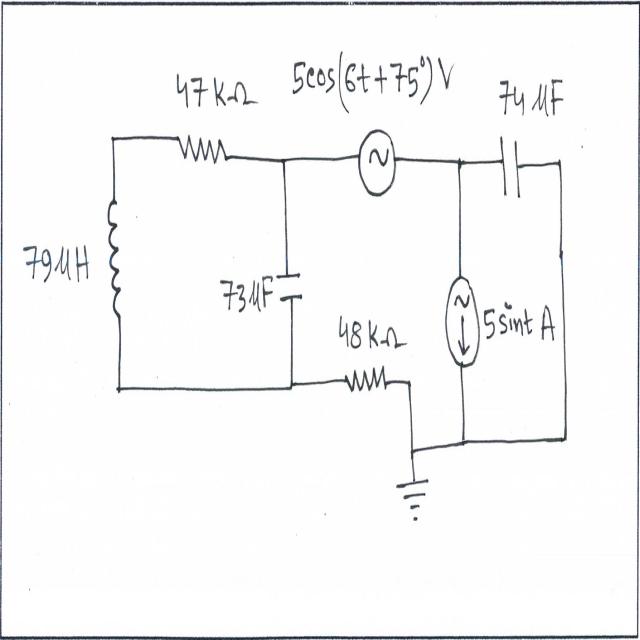 47 KΩ
5cos(6t+75°)V
74 µF
79µH
73µF
48 KΩ
5 sint A